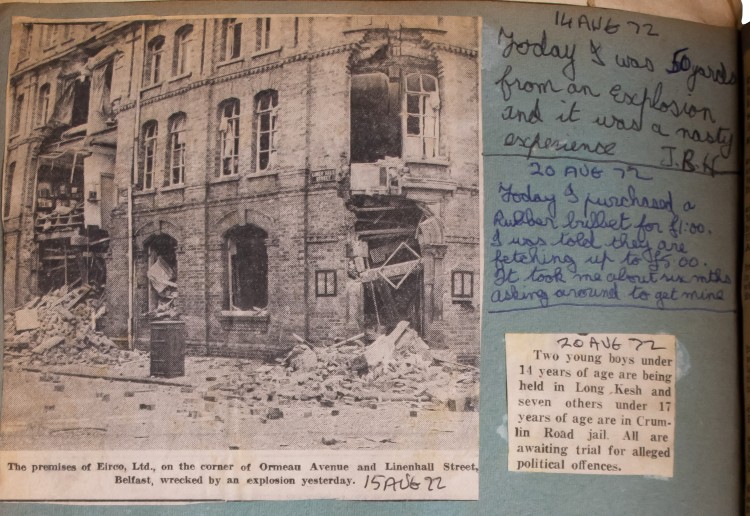 The premises of Eirco, Ltd., on the corner of Ormeau Avenue and Linenhall Street,
Belfast, wrecked by an explosion yesterday. 15 AUG 72
14 AUG 72
Today I was 50 yards
from an explosion
and it was a nasty
experience J.B.H
20 AUG 72
Today I purchased a
Rubber bullet for £1.00.
I was told they are
fetching up to £5.00.
It took me about six mths
asking around to get mine
20 AUG 72
Two young boys under
14 years of age are being
held in Long Kesh and
seven others under 17
years of age are in Crum-
lin Road jail. All are
awaiting trial for alleged
political offences.